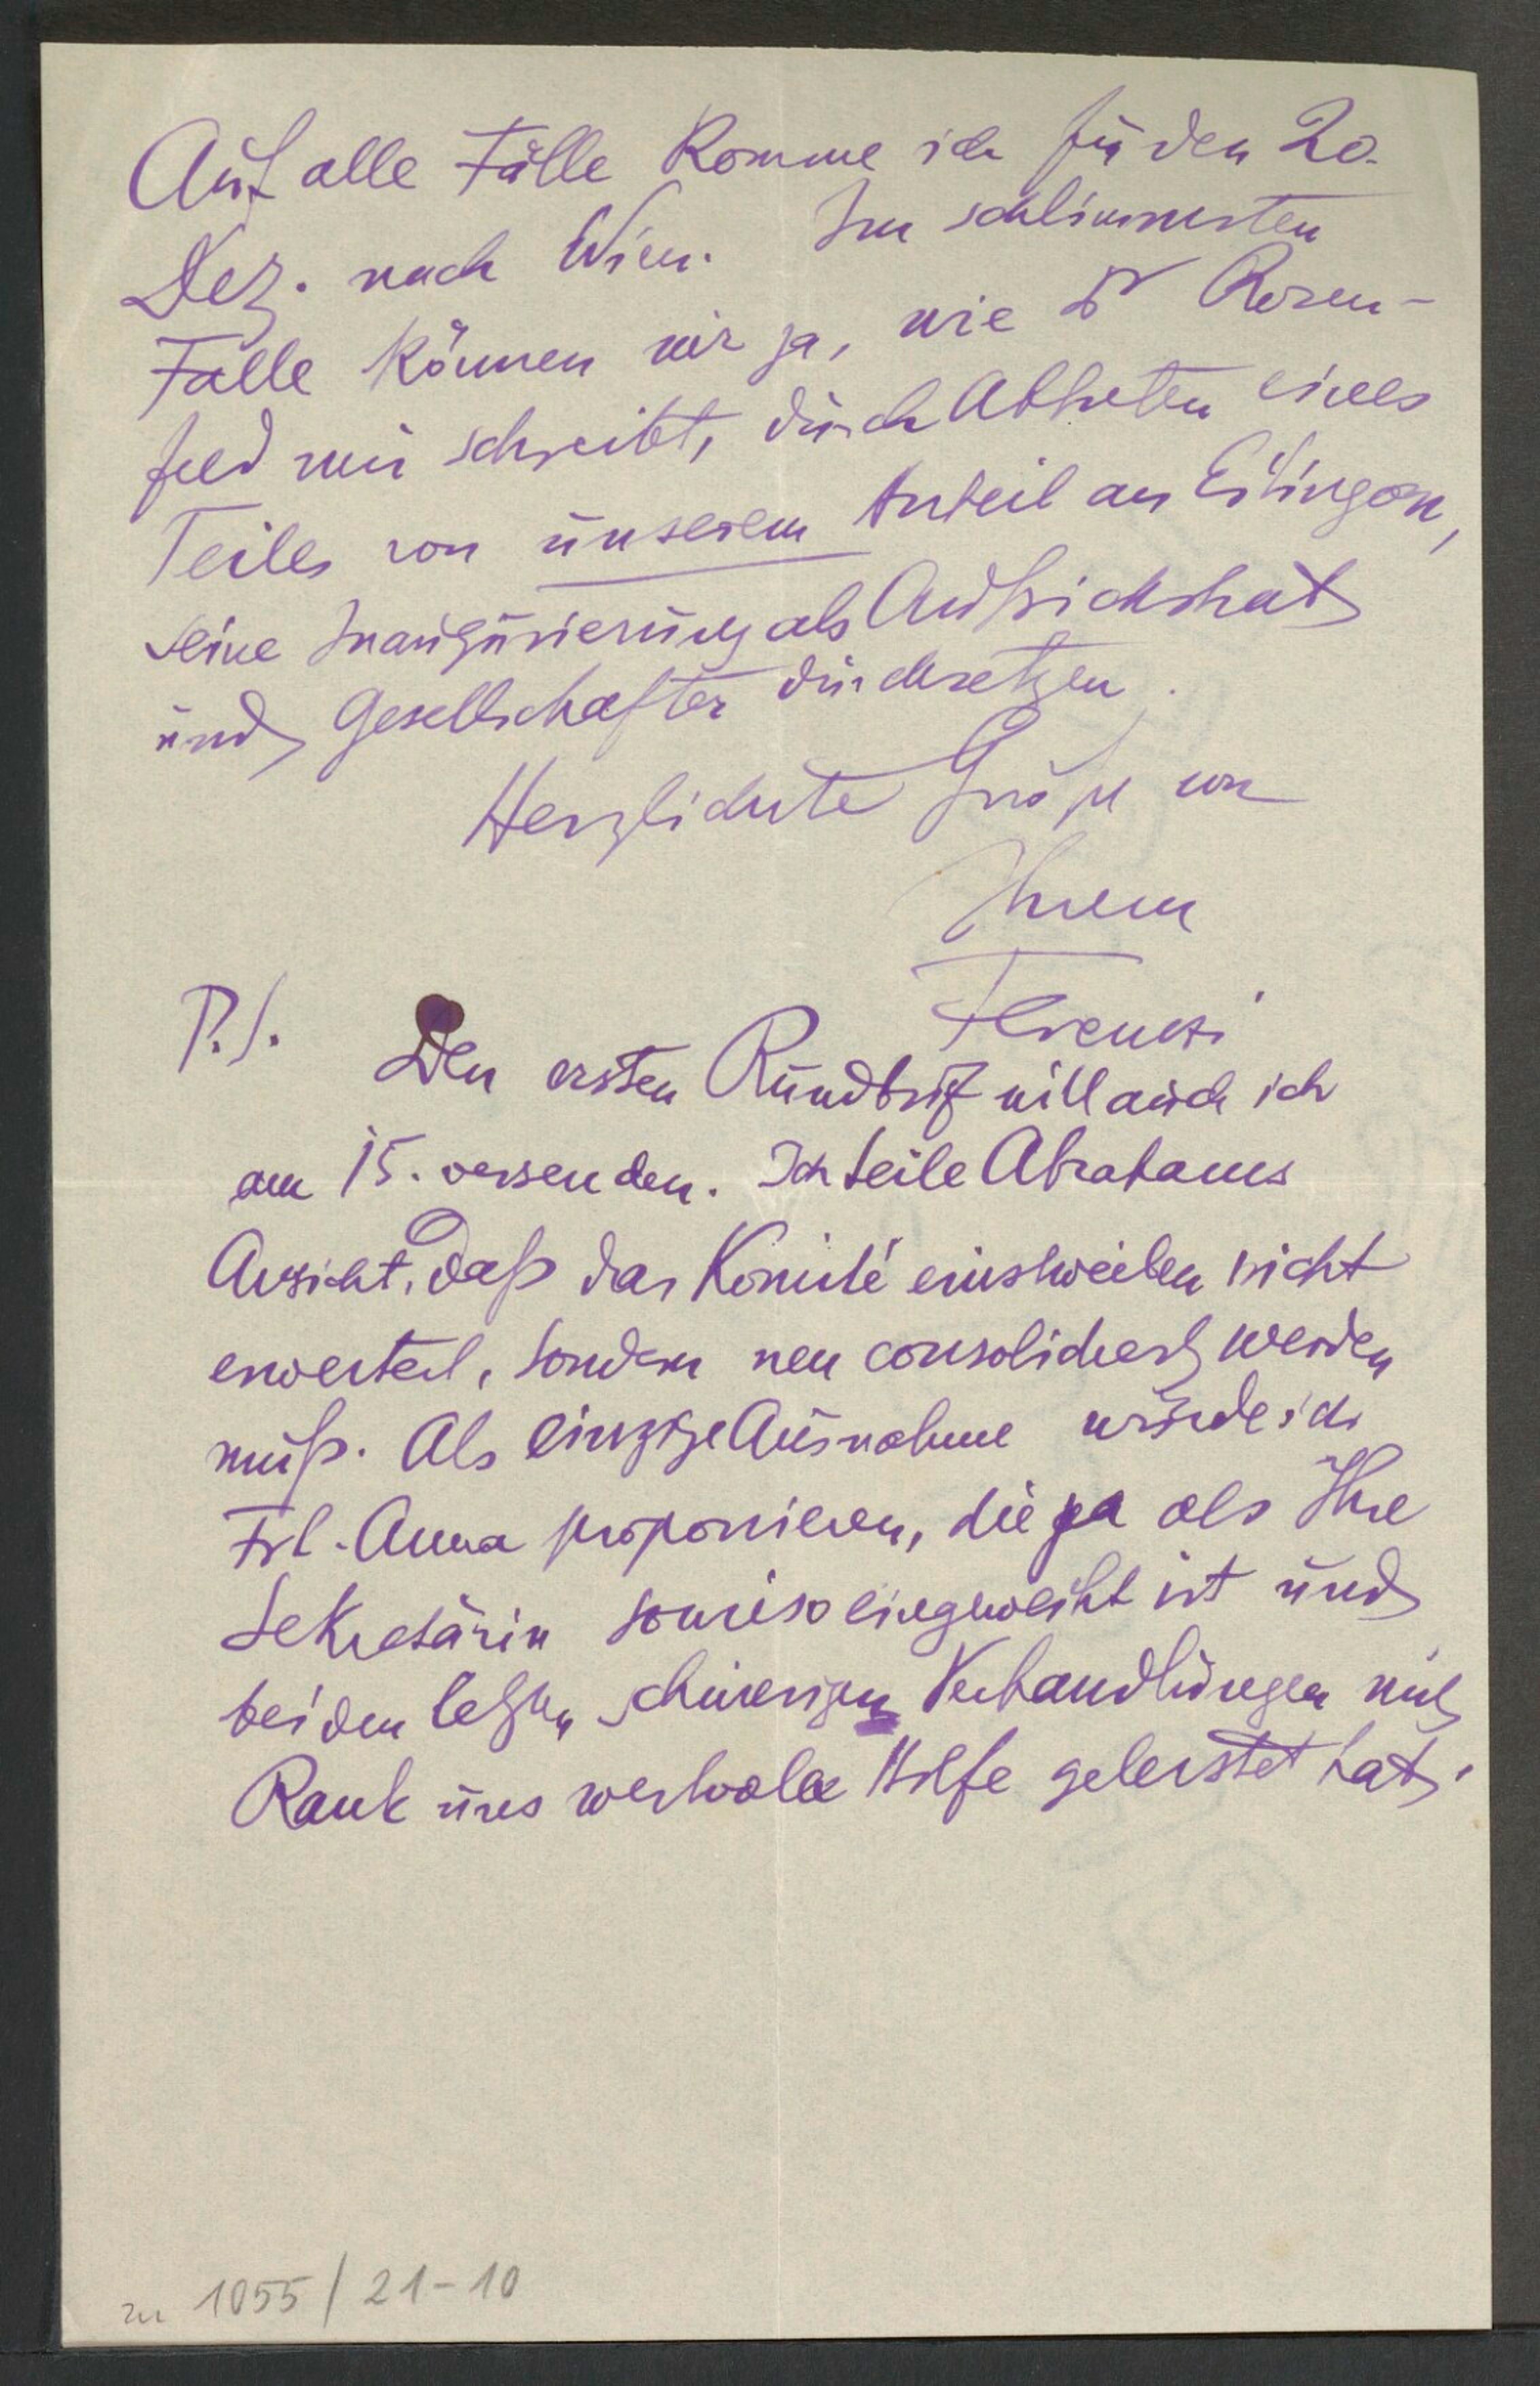 Auf alle Fälle komme ich für den 20.
Dez. nach Wien. Im schlimmsten
Falle können wir ja, wie Dr Rosen-
feld mir schreibt, durch Abtreten eines
Teiles von unserem Anteil an Eitingon,
seine Inaugurierung als Aufsichtsrat
und Gesellschafter durchsetzen.
Herzlichste Grüße von
Ihrem
Ferenczi
P.S. Den ersten Rundbrief will auch ich
am 15. versenden. Ich teile Abrahams
Ansicht, daß das Komité einstweilen nicht
erweitert, sondern neu consolidiert werden
muß. Als einzige Ausnahme würde ich
Frl. Anna proponieren, die ja als Ihre
Sekretärin sowieso eingeweiht ist und
bei den letzten schwierigen Verhandlungen mit
Rank uns wertvolle Hilfe geleistet hat.
zu 1055/21-10